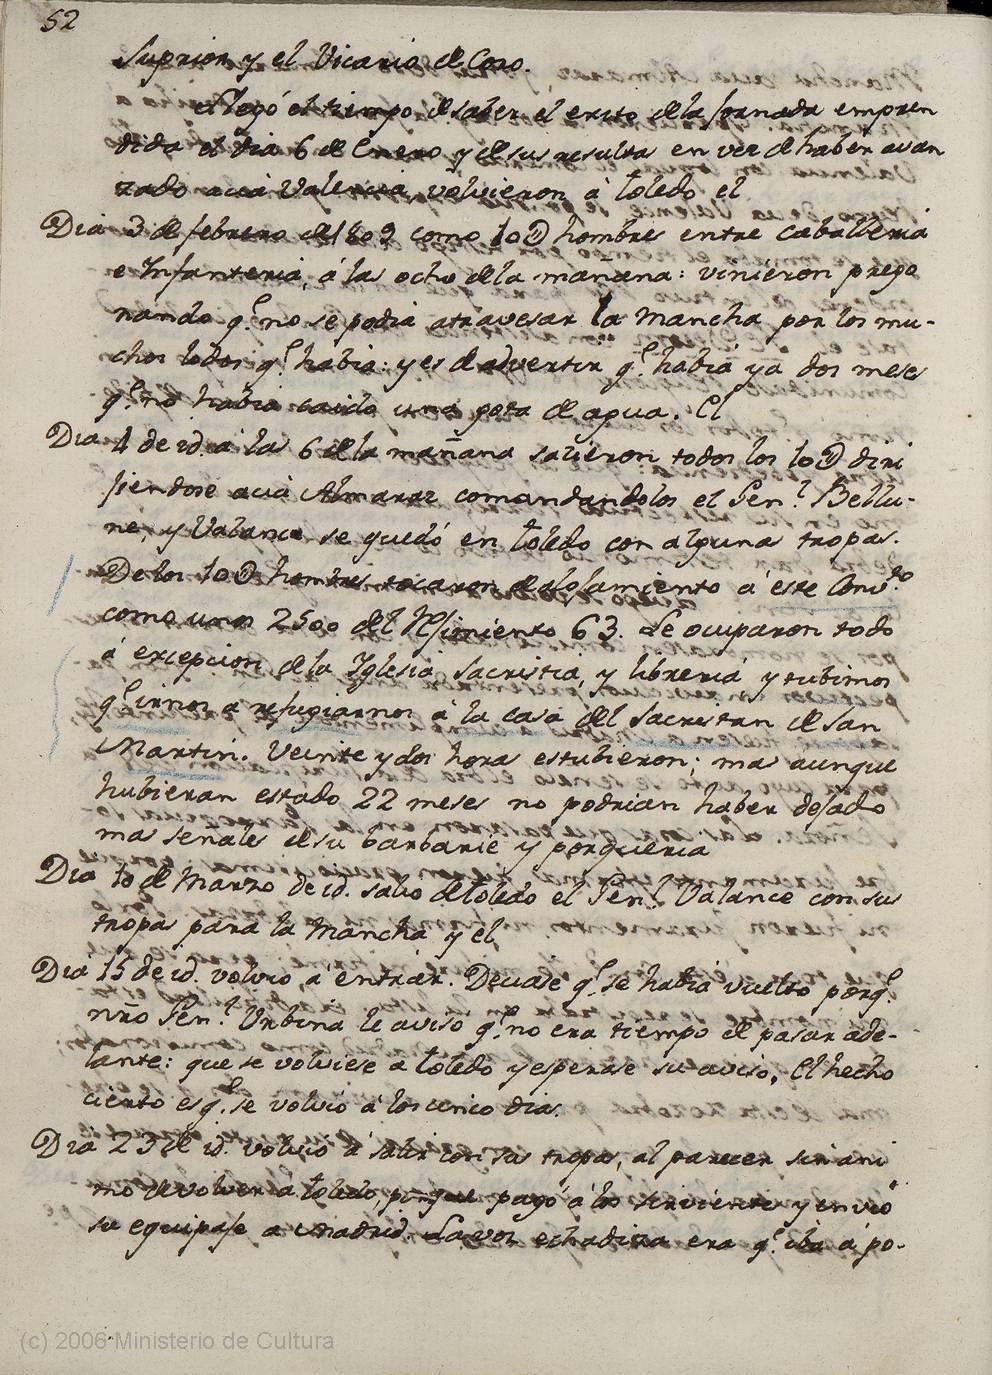 52
Suprior y el Vicario de Coro.
Llegó el tiempo de saber el exito de la jornada empren
dida el dia 6 de Enero y de sus resultas en vez de haber avan
zado acia Valencia, volvieron á toledo el
Dia 3 de febrero de 1809 como 10D hombres entre caballeria
e Infanteria, á las ocho de la mañana: vinieron prego
nando q.e no se podia atravesar la Mancha por los mu-
chos lodos q.e habia: y es de advertir q.e habia ya dos meses
q.e no habia caido una gota de agua. El
Dia 4 de id. á las 6 de la mañana salieron todos los 10D diri
jiendose acia Almaraz comandandolos el Gen.l Bellu-
ne, y Valance se quedó en toledo con algunas tropas.
De los 10D hombres tocaron de alojamiento á este Conv.to
como unos 2500 del Rejimiento 63. Se ocuparon todo
á excepcion de la Iglesia, Sacristia, y libreria y tubimos
q.e irnos a refugiarnos á la casa del Sacristan de San
Martin. Veinte y dos horas estubieron; mas aunque
hubieran estado 22 meses no podrian haber dejado
mas señales de su barbarie y porqueria
Dia 10 de Marzo de id. salio de toledo el Gen.l Valance con sus
tropas para la Mancha y el
Dia 15 de id. volvio á entrar. Deciase q.e se habia vuelto porq.e
nr̃o Gen.l Urbina le aviso q.e no era tiempo de pasar ade-
lante: que se volviese a toledo y esperase su aviso, El hecho
cierto es q.e se volvio á los cinco dias.
Dia 23 de id. volvio á salir con sus tropas, al parecer sin ani
mo de volver a toledo, porque pagó á los sirvientes y envió
su equipaje a Madrid. La voz echadiza era q.e iba á po-
(c) 2006 Ministerio de Cultura